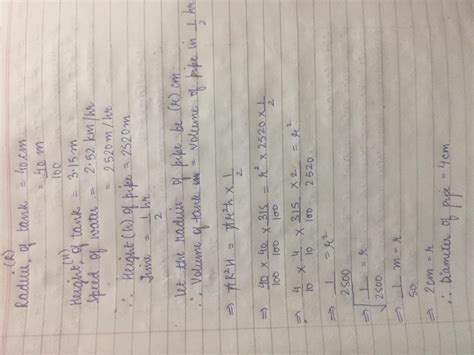 Radius (R) of tank = 40 cm
= 40/100 m
Height (H) of tank = 3.15 m
Speed of water = 2.52 km/hr
= 2520 m/hr
∴ Height (h) of pipe = 2520m
Time = 1/2 hr
Let the radius of pipe be (r) cm
∴ Volume of tank = volume of pipe in 1/2 hr
⇒ πR²H = πr²h × 1/2
⇒ 40/100 × 40/100 × 315/100 = r² × 2520 × 1/2
⇒ 4/10 × 4/10 × 315/100 × 2/2520 = r²
⇒ 1/2500 = r²
⇒ √1/2500 = r
⇒ 1/50 m = r
⇒ 2cm = r
∴ Diameter of pipe = 4cm